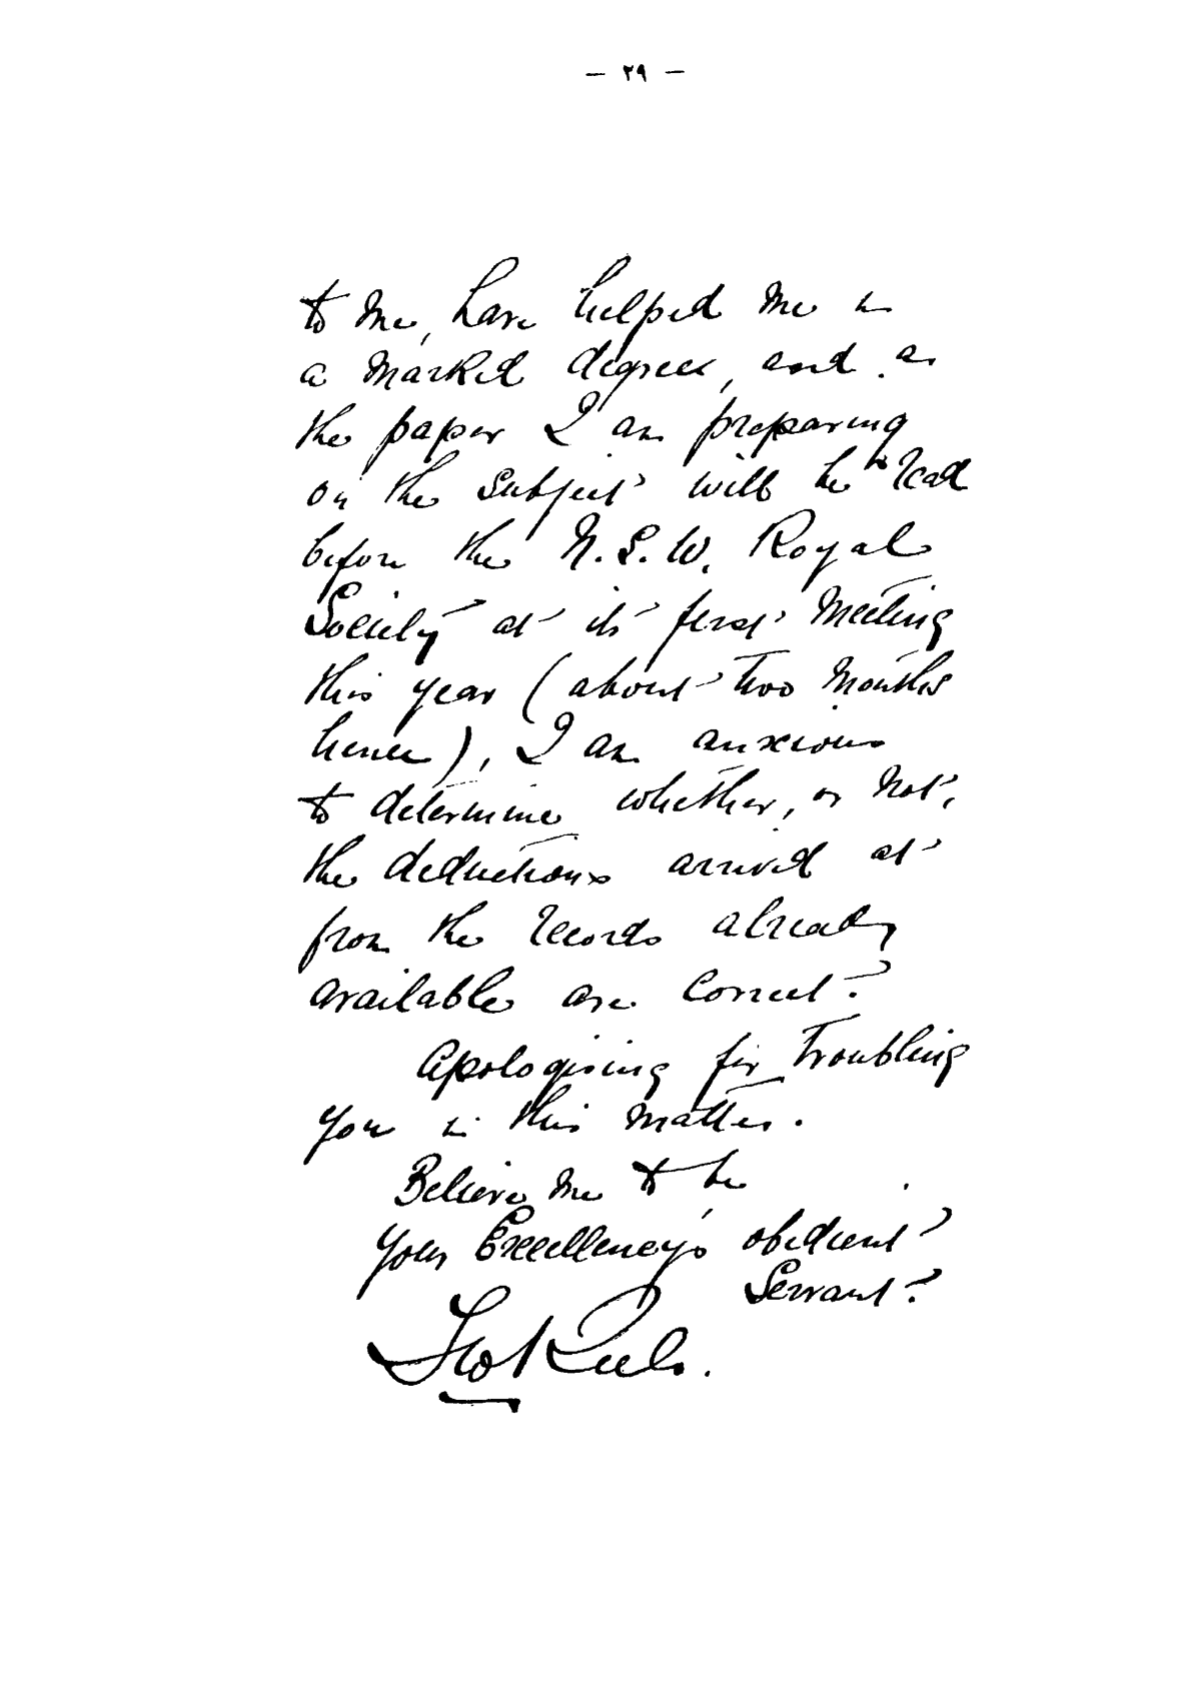 — ٢٩ —
to me, have helped me in
a marked degree, and as
the paper I am preparing
on the subject will be read
before the N.S.W. Royal
Society at its first meeting
this year (about two months
hence), I am anxious
to determine whether, or not,
the deductions arrived at
from the records already
available are correct.
Apologising for troubling
you in this matter.
Believe me to be
Your Excellency's obedient
Servant.